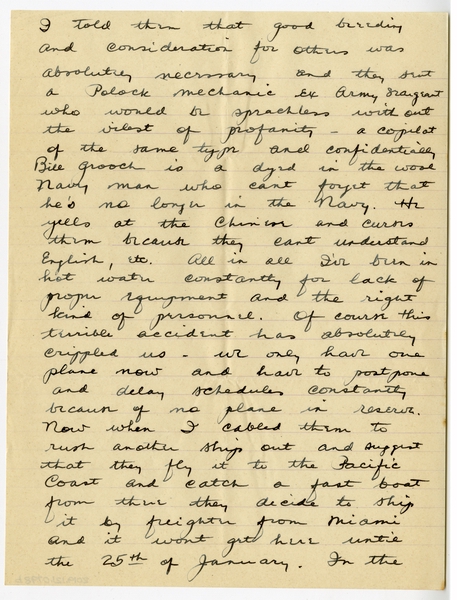 I told them that good breeding
and consideration for others was
absolutely necessary and they sent
a Polack mechanic ex Army Seargent
who would be speachless without
the vilest of profanity - a copilot
of the same type and confidentially
Bill Grooch is a dyed in the wool
Navy man who cant forget that
he's no longer in the Navy. He
yells at the Chinese and curses
them because they cant understand
English, etc. All in all I've been in
hot water constantly for lack of
proper equipment and the right
kind of personnel. Of course this
terrible accident has absolutely
crippled us - we only have one
plane now and have to postpone
and delay schedules constantly
because of no plane in reserve.
Now when I cabled them to
rush another ship out and suggest
that they fly it to the Pacific
Coast and catch a fast boat
from there they decide to ship
it by freighter from Miami
and it wont get here until
the 25th of January. In the